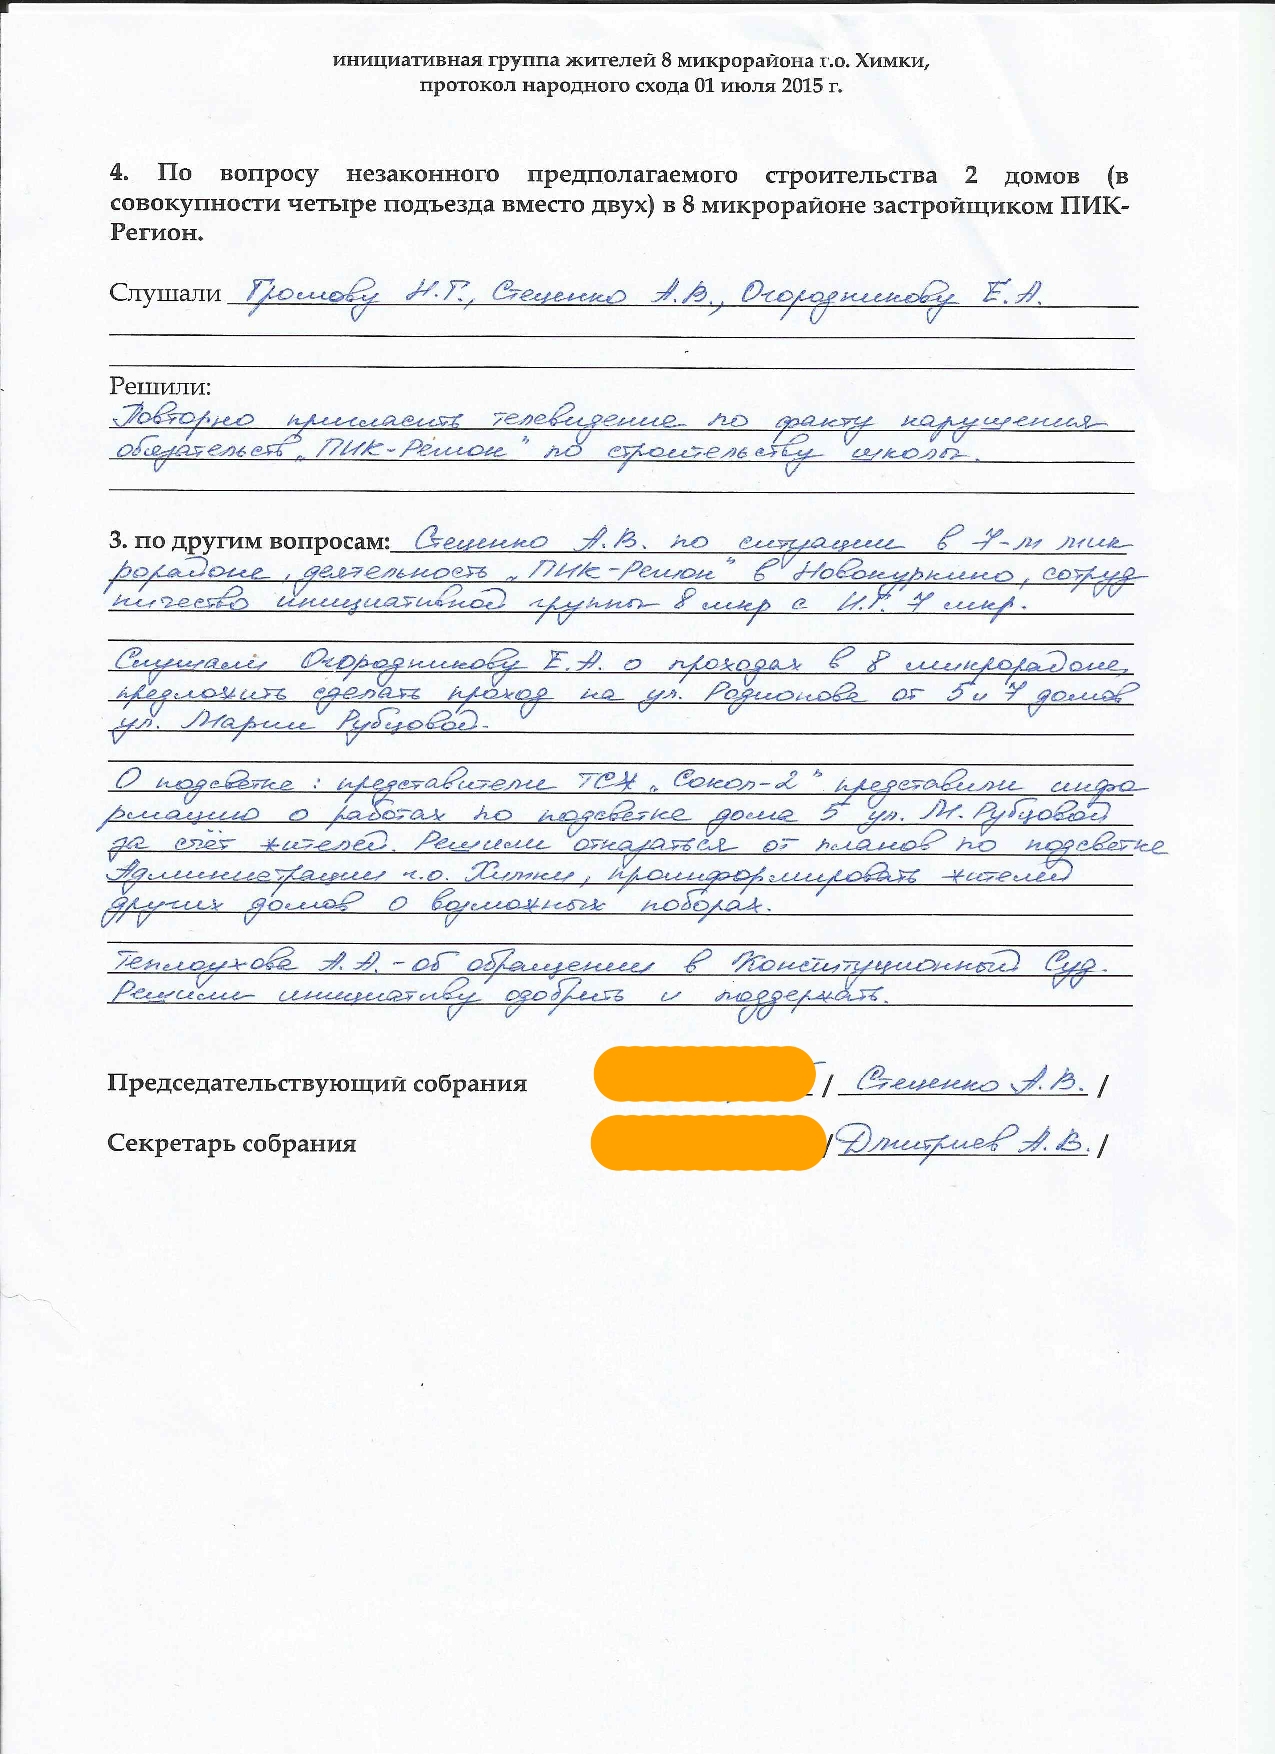 инициативная группа жителей 8 микрорайона г.о. Химки,
протокол народного схода 01 июля 2015 г.
4. По вопросу незаконного предполагаемого строительства 2 домов (в
совокупности четыре подъезда вместо двух) в 8 микрорайоне застройщиком ПИК-
Регион.
Слушали Громову Н.Г., Стеценко А.В., Огородникову Е.А.
Решили:
Повторно пригласить телевидение по факту нарушения
обязательств „ПИК-Регион" по строительству школы.
3. по другим вопросам: Стеценко А.В. по ситуации в 7-м мик
рорайоне, деятельность „ПИК-Регион" в Новокуркино, сотруд
ничество инициативной группы 8 мкр с И.Г. 7 мкр.
Слушали Огородникову Е.А. о проходах в 8 микрорайоне,
предложить сделать проход на ул. Родионова от 5 и 7 домов
ул. Марии Рубцовой.
О подсветке: представители ТСЖ „Сокол-2" представили инфо
рмацию о работах по подсветке дома 5 ул. М. Рубцовой
за счёт жителей. Решили отказаться от планов по подсветке
Администрации г.о. Химки, проинформировать жителей
других домов о возможных поборах.
Теплоухова А.А. - об обращении в Конституционный Суд.
Решили инициативу одобрить и поддержать.
Председательствующий собрания / Стеценко А.В. /
Секретарь собрания / Дмитриев А.В. /